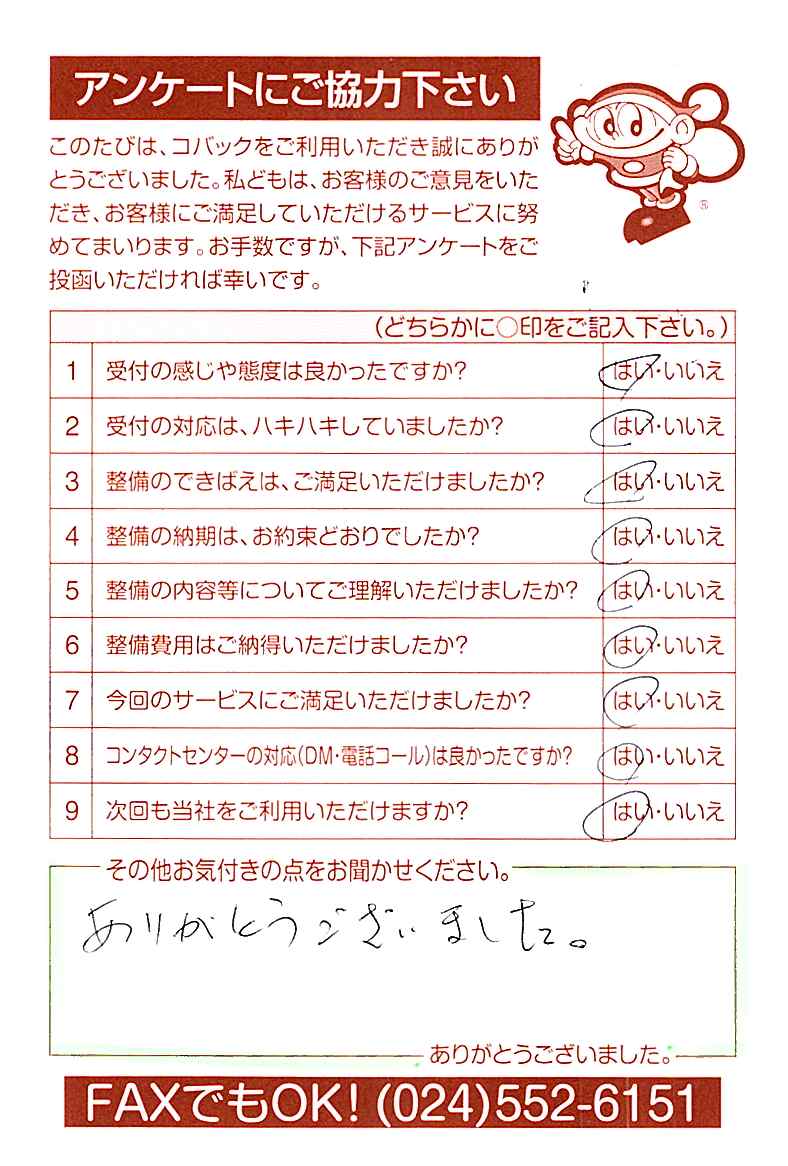 アンケートにご協力下さい
このたびは、コバックをご利用いただき誠にありが
とうございました。私どもは、お客様のご意見をいた
だき、お客様にご満足していただけるサービスに努
めてまいります。お手数ですが、下記アンケートをご
投函いただければ幸いです。
®
(どちらかに○印をご記入下さい。)
1 受付の感じや態度は良かったですか? はい・いいえ
2 受付の対応は、ハキハキしていましたか? はい・いいえ
3 整備のできばえは、ご満足いただけましたか? はい・いいえ
4 整備の納期は、お約束どおりでしたか? はい・いいえ
5 整備の内容等についてご理解いただけましたか? はい・いいえ
6 整備費用はご納得いただけましたか? はい・いいえ
7 今回のサービスにご満足いただけましたか? はい・いいえ
8 コンタクトセンターの対応(DM・電話コール)は良かったですか? はい・いいえ
9 次回も当社をご利用いただけますか? はい・いいえ
その他お気付きの点をお聞かせください。
ありがとうございました。
ありがとうございました。
FAXでもOK! (024)552-6151